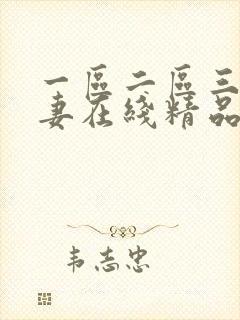 一區二區三
妻在綫精品
韦志忠